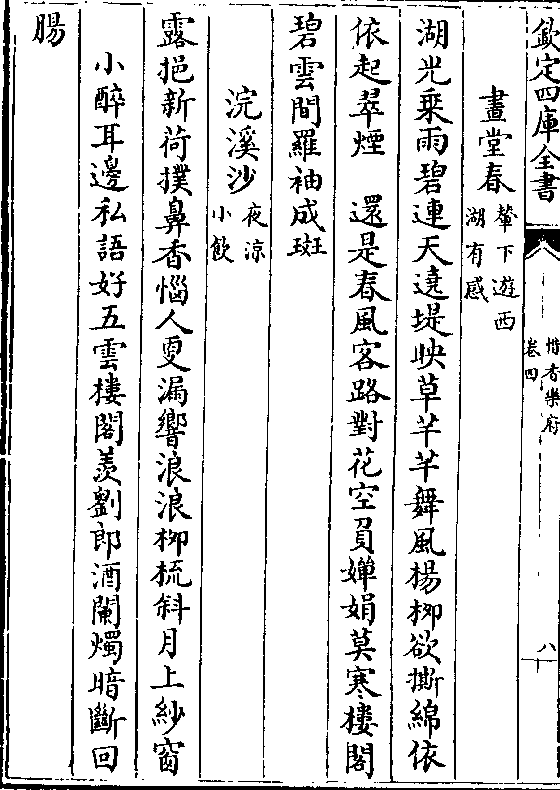 欽定四庫全書
惜香樂府
卷四
八
畫堂春 輦下遊西湖有感
湖光乗雨碧連天逺堤映草芊芊舞風楊栁欲撕綿依
依起翠煙　還是春風客路對花空負嬋娟莫寒樓閣
碧雲間羅袖成斑
浣溪沙 夜涼小飲
露挹新荷撲鼻香惱人更漏響浪浪栁梳斜月上紗窗
小醉耳邊私語好五雲樓閣羡劉郎酒闌燭暗斷回
腸